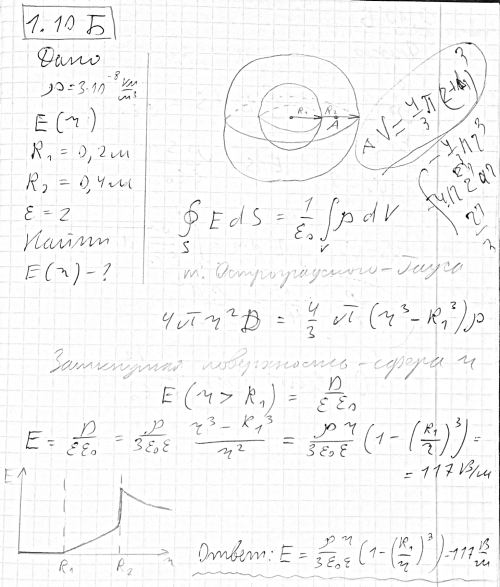 1.10 Б
Дано
ρ = 3·10⁻⁸ Кл/м³
E(r)
R₁ = 0,2 м
R₂ = 0,4 м
ε = 2
Найти
E(r) - ?
R₁ R₂
A
∮_S E dS = 1/ε₀ ∫_V ρ dV
т. Остроградского-Гауса
4πr²D = 4/3 π (r³ - R₁³)ρ
Замкнутая поверхность - сфера r
E(r > R₁) = D/εε₀
E = D/εε₀ = ρ/3ε₀ε (r³ - R₁³)/r² = ρr/3ε₀ε (1 - (R₁/r)³) =
= 117 В/м
E
R₁ R₂ r
Ответ: E = ρr/3ε₀ε (1 - (R₁/r)³) = 117 В/м